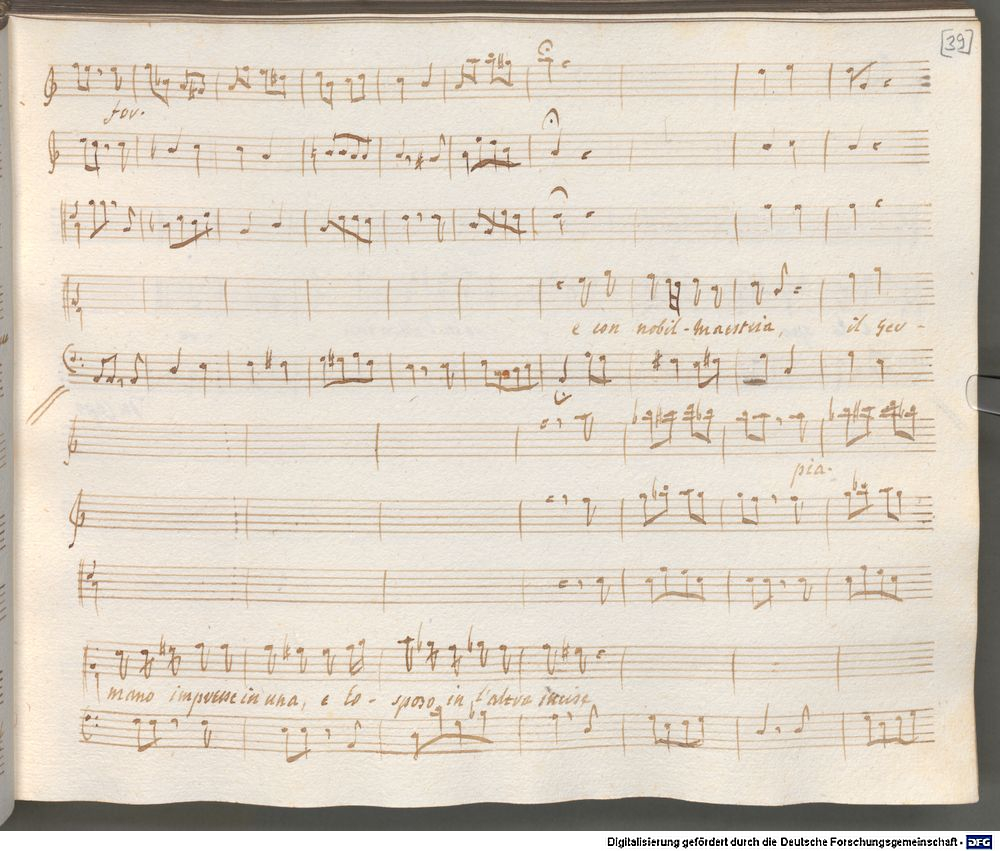 [39]
for.
e con nobil-maestria, il Ger-
pia.
mano impresse in una, e lo-sposo in l'altra incise
Digitalisierung gefördert durch die Deutsche Forschungsgemeinschaft - DFG